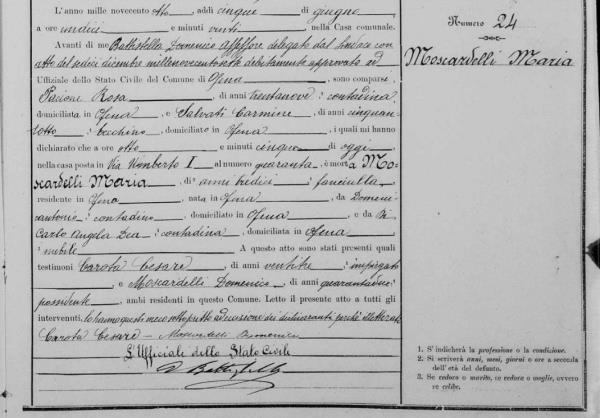 L'anno mille novecento otto, addì cinque di giugno
a ore undici e minuti venti, nella Casa comunale.
Avanti di me Battistella Domenico Assessore delegato dal Sindaco con
atto del sedici dicembre millenovecentosette debitamente approvato ed
Uffiziale dello Stato Civile del Comune di Ofena, sono comparsi
Pacione Rosa, di anni trentanove, contadina
domiciliata in Ofena, e Salvati Carmine, di anni cinquan-
totto, becchino, domiciliato in Ofena, i quali mi hanno
dichiarato che a ore otto e minuti cinque di oggi,
nella casa posta in Via Umberto I al numero quaranta, è morta Mo-
scardelli Maria, di anni tredici, fanciulla,
residente in Ofena, nata in Ofena, da Domeni-
cantonio, contadino, domiciliato in Ofena, e da Di
Carlo Angela Dea, contadina, domiciliata in Ofena
nubile. A questo atto sono stati presenti quali
testimoni Carota Cesare, di anni ventitre, impiegato
, e Moscardelli Domenico, di anni quarantadue,
possidente, ambi residenti in questo Comune. Letto il presente atto a tutti gli
intervenuti, lo hanno questi meco sottoscritto ad eccezione dei dichiaranti perchè illetterati
Carota Cesare - Moscardelli Domenico
L'Ufficiale dello Stato Civile
Numero 24
Moscardelli Maria
1. S'indicherà la professione o la condizione.
2. Si scriverà anni, mesi, giorni o ore a seconda
dell'età del defunto.
3. Se vedovo o marito, se vedova o moglie, ovvero
se celibe.